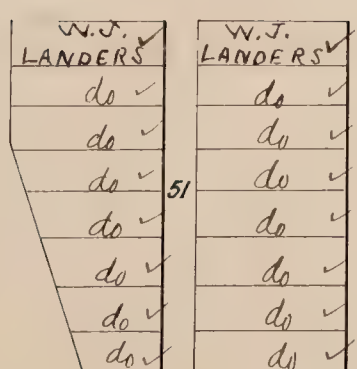 W.J.
LANDERS ✓
do ✓
do ✓
do ✓
do ✓
do ✓
do ✓
do ✓
51
W.J.
LANDERS ✓
do ✓
do ✓
do ✓
do ✓
do ✓
do ✓
do ✓